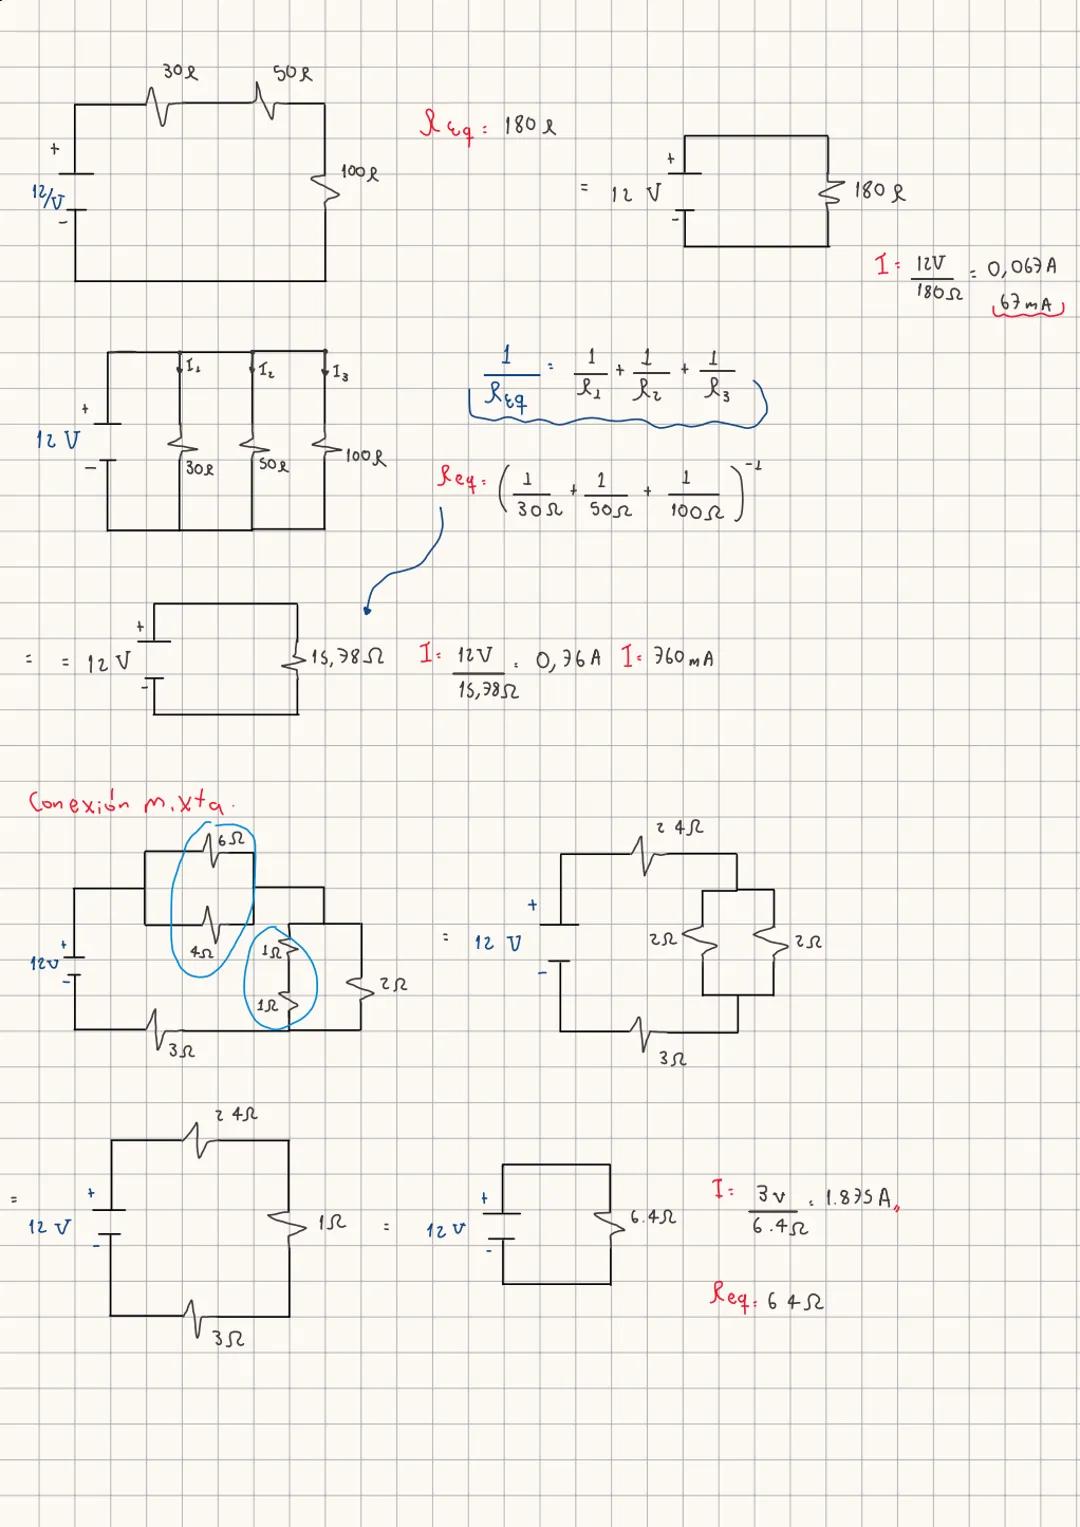 30Ω 50Ω
+
12/V
-
100Ω
Req = 180 Ω
= 12 V
+
-
180 Ω
I = 12V/180Ω = 0,067A
67mA
I₁ I₂ I₃
+
12 V
-
30Ω 50Ω 100Ω
1/REq = 1/R1 + 1/R2 + 1/R3
Req = (1/30Ω + 1/50Ω + 1/100Ω)^-1
= = 12 V
+
-
15,78Ω
I = 12V/15,78Ω = 0,76A I = 760mA
Conexión mixta.
6Ω
4Ω
+
12V
-
1Ω
1Ω
2Ω
3Ω
2 4Ω
+
= 12 V
-
2Ω 2Ω
3Ω
2 4Ω
=
+
12 V
-
1Ω
3Ω
=
+
12 V
-
6.4Ω
I = 3v/6.4Ω = 1.875A,,
Req = 6 4Ω